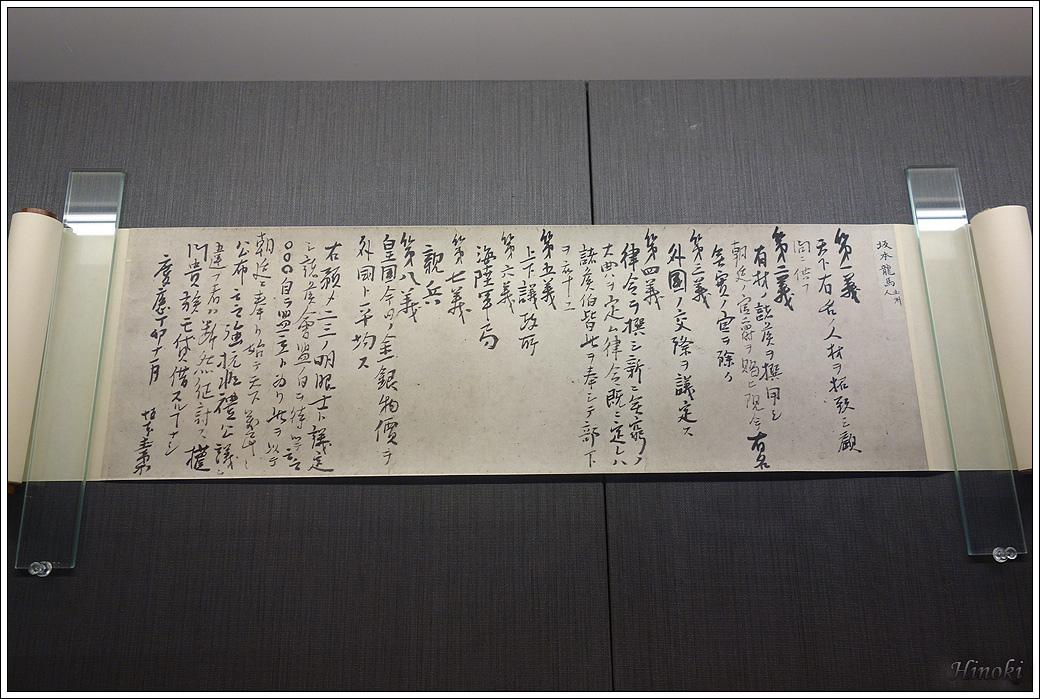 坂本龍馬
第一義
天下有名ノ人材ヲ招致シ顧
問ニ供フ
第二義
有材ノ諸侯ヲ撰用シ
朝廷ノ官爵ヲ賜ヒ現今有名
無實ノ官ヲ除ク
第三義
外國ノ交際ヲ議定ス
第四義
律令ヲ撰シ新ニ無窮ノ
大典ヲ定ム律令既ニ定レハ
諸侯伯皆此ヲ奉シテ部下
ヲ率ユ
第五義
上下議政所
第六義
海陸軍局
第七義
親兵
第八義
皇國今日ノ金銀物價ヲ
外國ト平均ス
右預メ二三ノ明眼士ト議定
シ諸侯會盟ノ日ヲ待ツテ云云
〇〇〇自ラ盟主ト為リ此ヲ以テ
朝廷ニ奉リ始テ天下萬民ニ
公布云云強抗非禮公議ニ
違フ者ハ断然征討ス權
門貴族モ貸借スルコトナシ
慶應丁卯十一月
坂本直柔
Hinoki